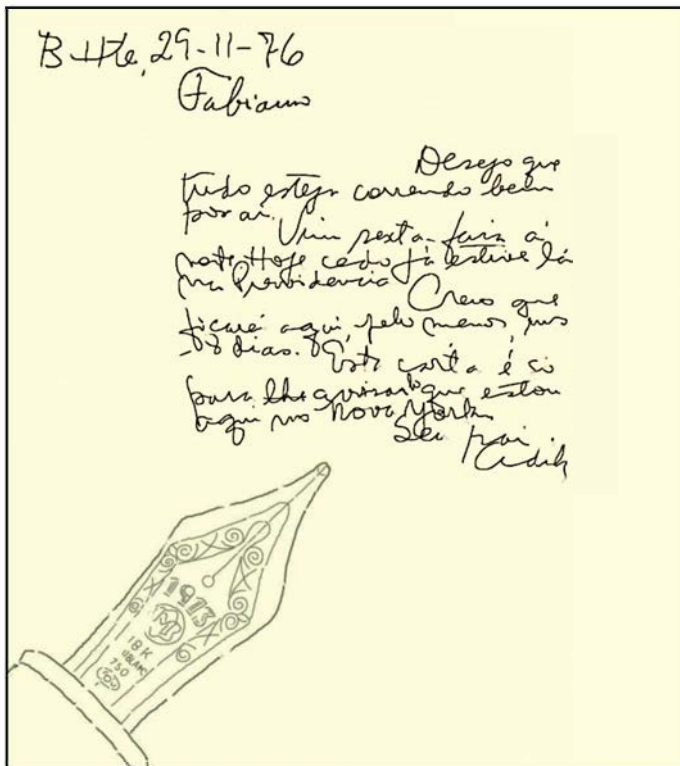 B Hte, 29-11-76
Fabiano
Desejo que
tudo esteja correndo bem
por aí.
Vim sexta-feira à
noite. Hoje cedo já estive lá
na Providencia
Creio que
ficarei aqui, pelo menos, uns
8 dias.
Esta carta é só
para lhe avisar que estou
aqui no Nova York
Seu pai
1913
MB
18 K
750